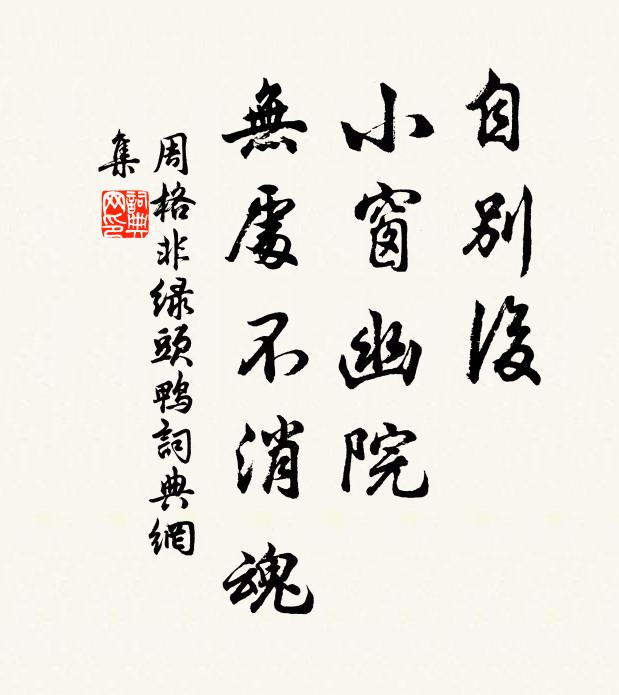 自別後
小窗幽院
無處不消魂
周格非綠頭鴨詞典網
集
詞典
网印